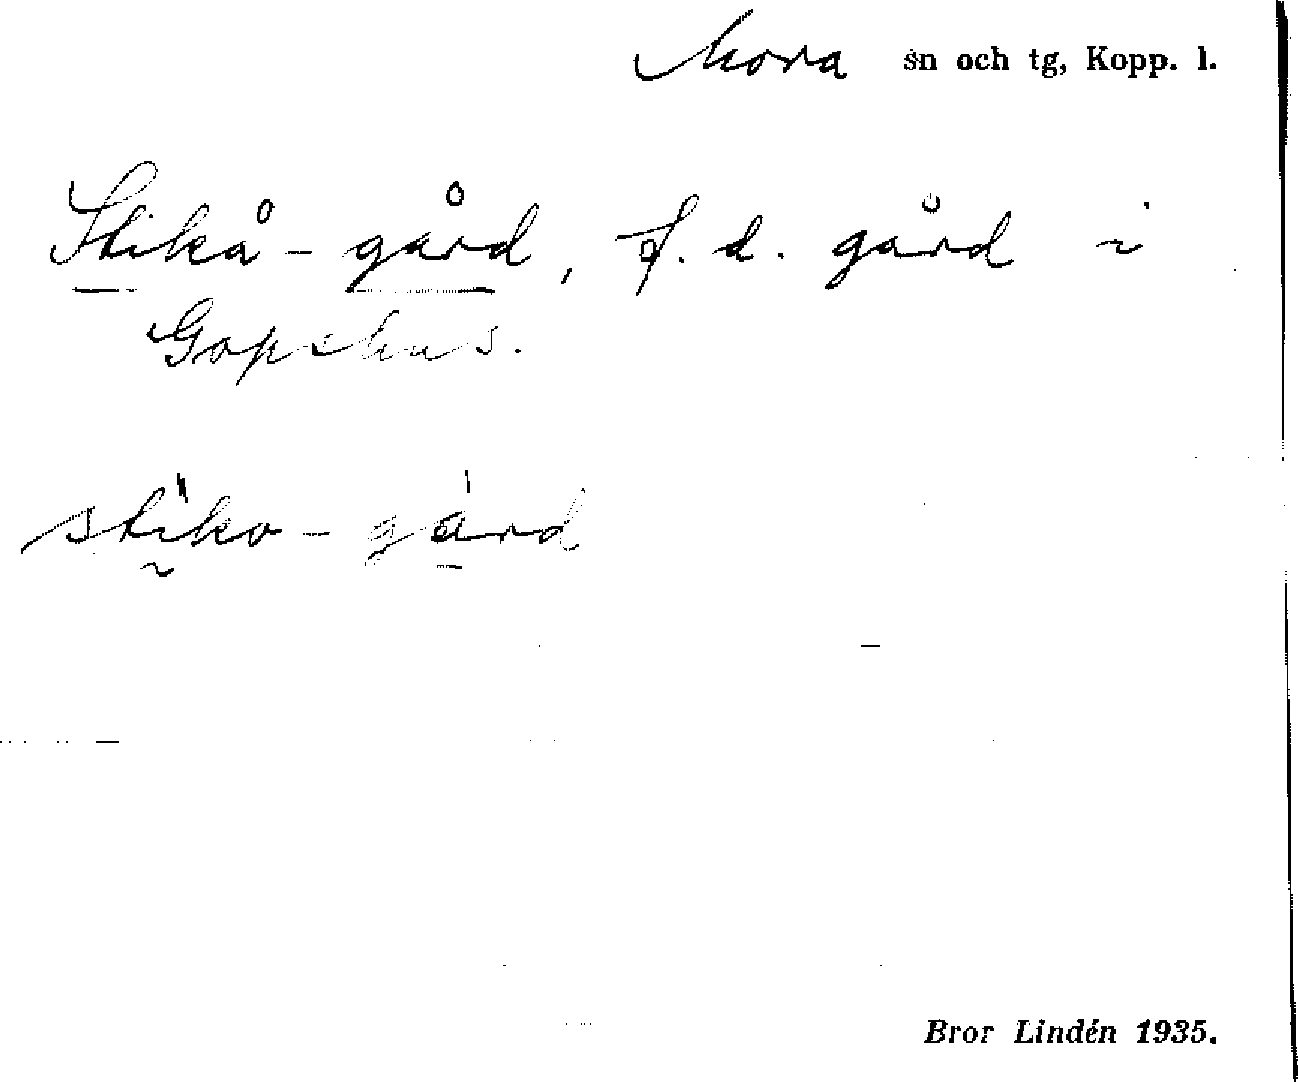 Mora sn och tg, Kopp. l.
Stikå-gård, f. d. gård i
Gopshus.
stiko-gård
Bror Lindén 1935.